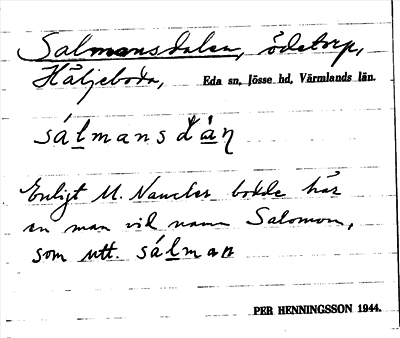 Salmansdalen, ödetorp,
Häljeboda, Eda sn, Jösse hd, Värmlands län.
sálmansdàn
Enligt M. Nauckér bodde här
en man vid namn Salomon,
som utt. sálman
PER HENNINGSSON 1944.